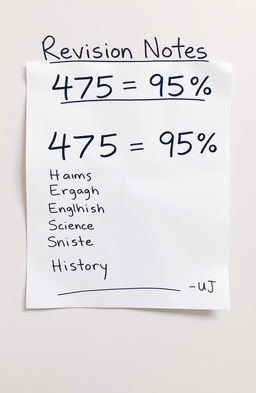 Revision Notes
475 = 95%
475 = 95%
Hams
Ergagh
Englhish
Science
Sniste
History
-UJ